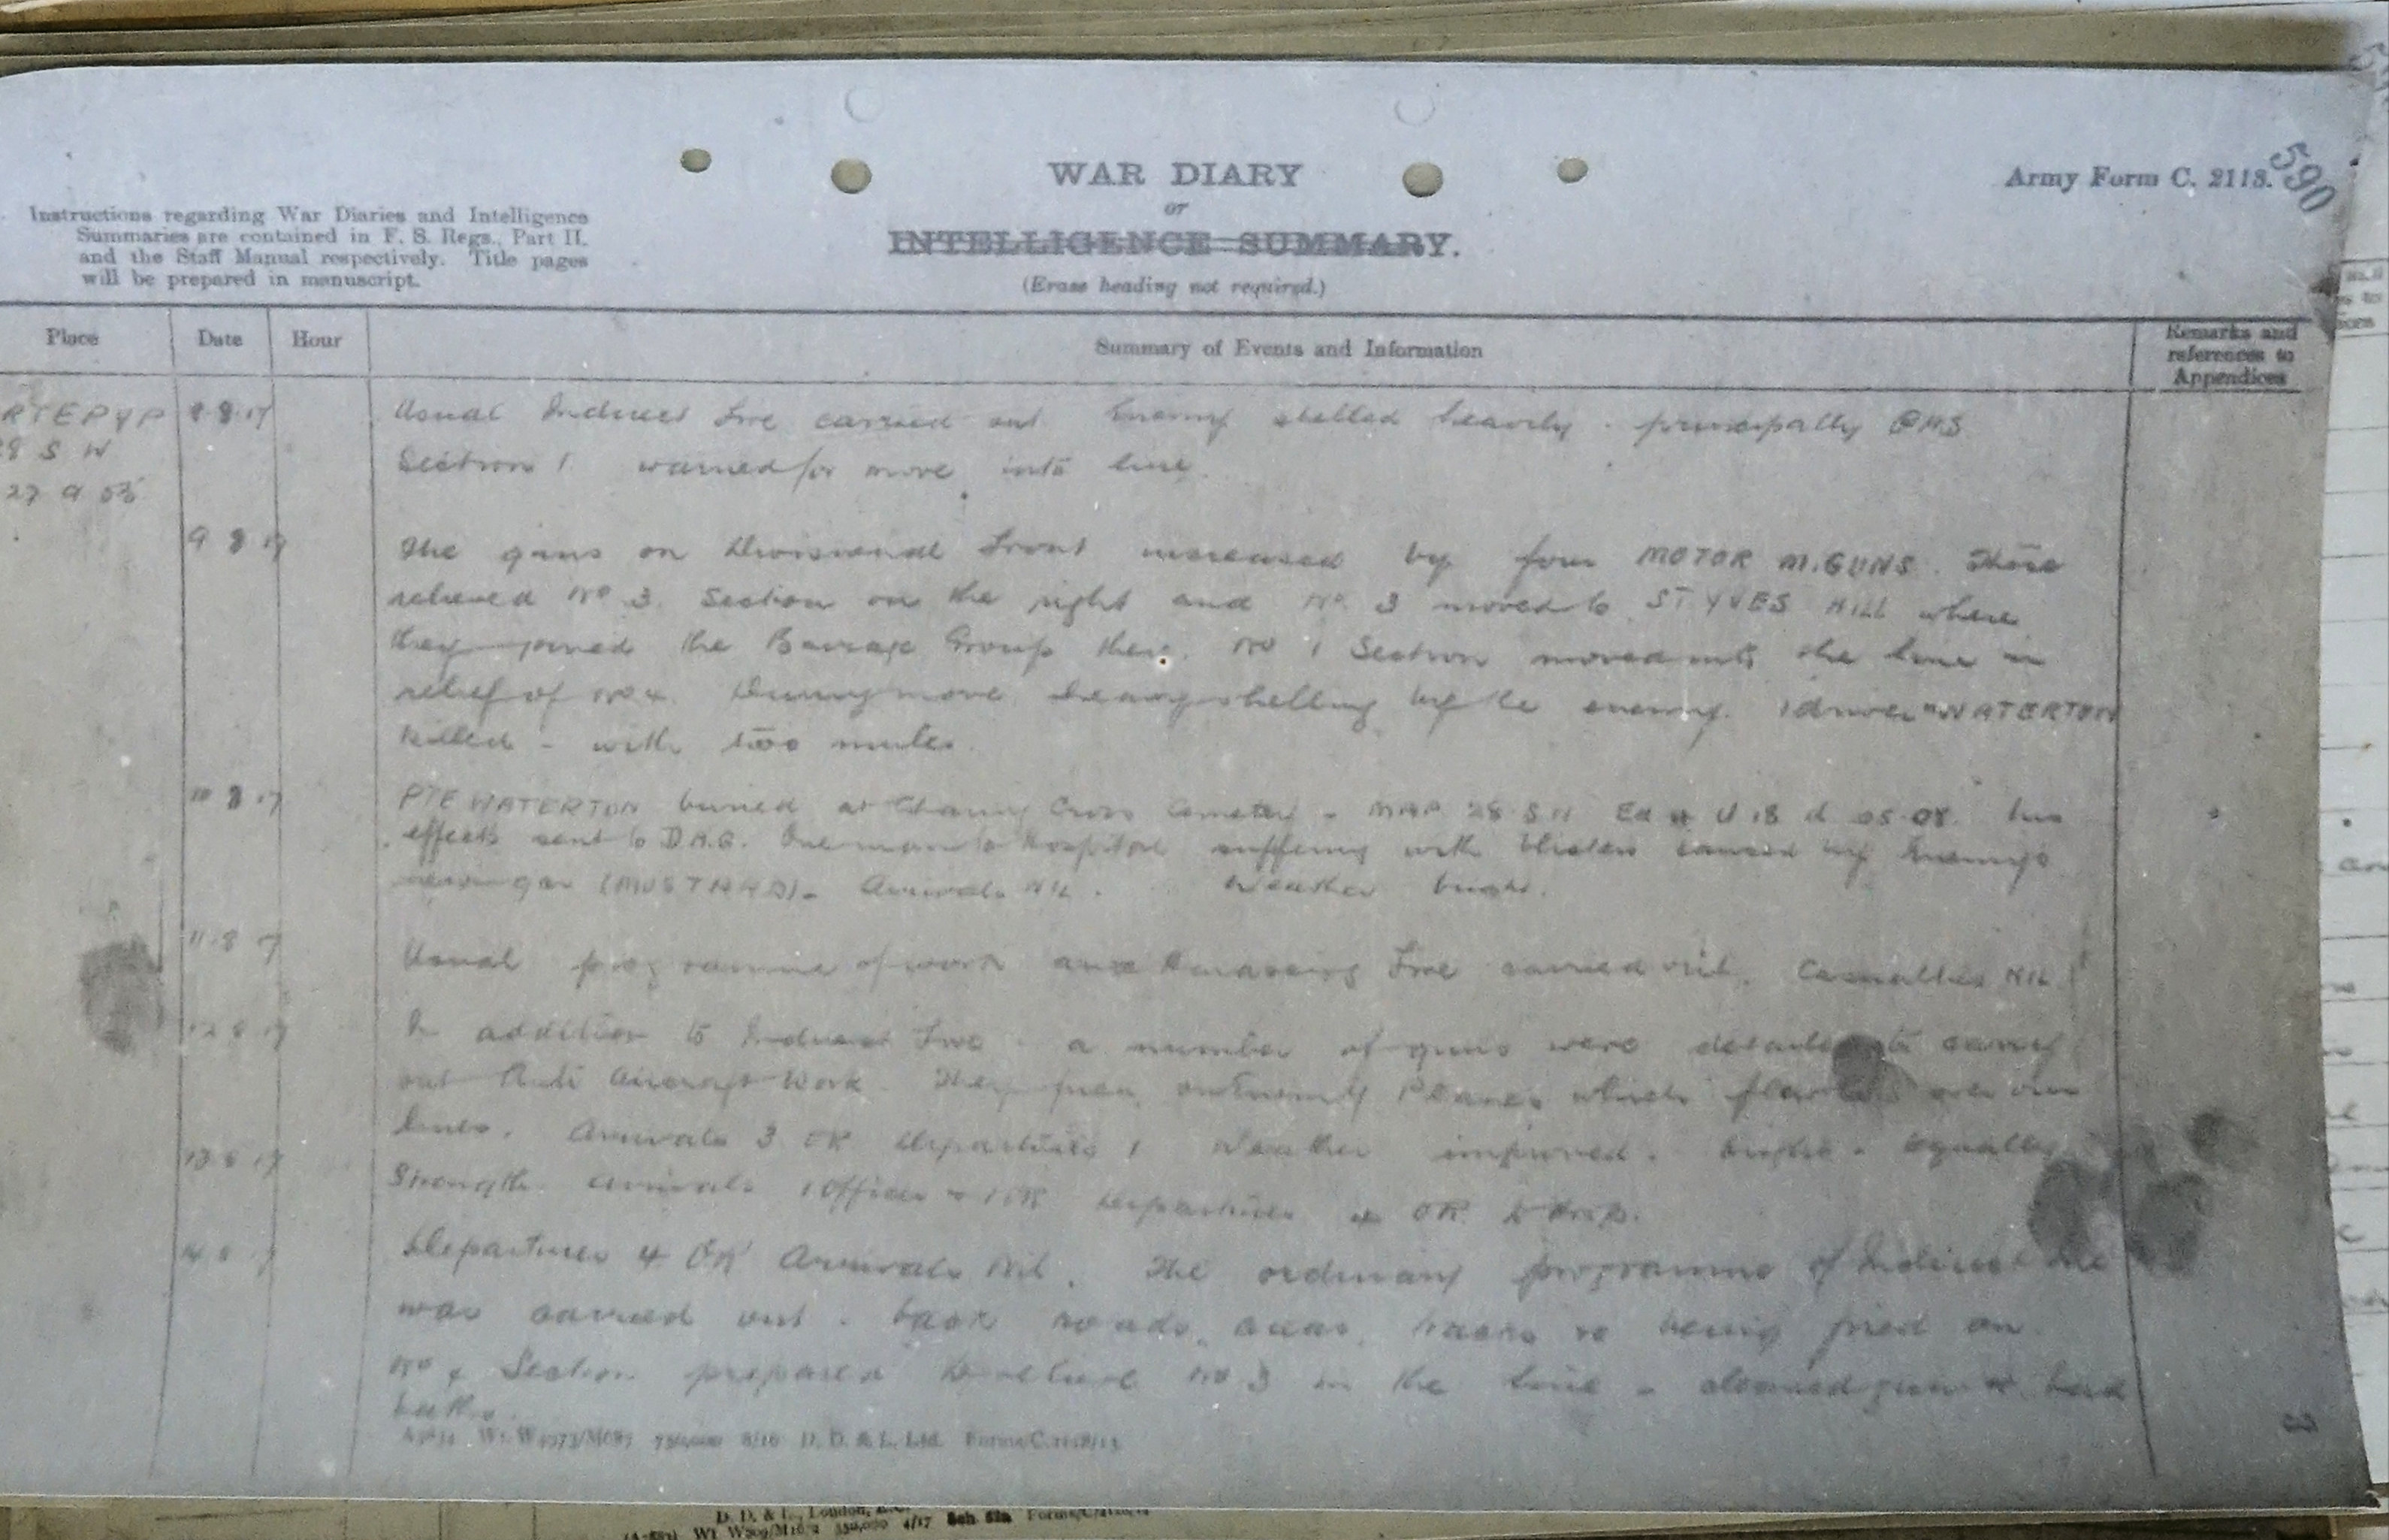 WAR DIARY
or
INTELLIGENCE SUMMARY.
(Erase heading not required.)
Army Form C. 2118.
590
Instructions regarding War Diaries and Intelligence
Summaries are contained in F. S. Regs., Part II.
and the Staff Manual respectively. Title pages
will be prepared in manuscript.
Place
Date
Hour
Summary of Events and Information
Remarks and
references to
Appendices
RTEPYP 8.8.17 Usual Indirect Fire carried out Enemy shelled heavily - principally
S W Section 1 warned for move into line.
27 a
9 8 17 The guns on Divisional Front increased by four MOTOR M.GUNS. These
relieved No 3. Section on the right and No. 3 moved to ST YVES HILL where
they joined the Barrage Group there. No 1 Section moved into the line in
relief of No 4. During move heavy shelling by the enemy. 1 driver WATERTON
killed - with two mules.
10 8 17 PTE WATERTON buried at Charing Cross Cemetery - MAP 28 S W U 18 d 05.08. his
effects sent to D.A.G. One man to Hospital suffering with blisters caused by Enemy's
new gas (MUSTARD) - Arrivals NIL. Weather bright.
11.8 17 Usual programme of work and Harassing Fire carried out. Casualties NIL
12 8 17 In addition to Indirect Fire - a number of guns were detailed to carry
out Anti Aircraft Work. They fired on Enemy Planes which flew over our
lines. Arrivals 3 OR Departures 1 Weather improved. bright -
13 8 17 Strength arrivals 1 Officer Departures OR to Hosp.
14 8 17 Departures 4 OR Arrivals Nil. The ordinary programme of Indirect Fire
was carried out - back roads, areas, tracks being fired on.
No 4 Section prepared to relieve No 3 in the line - cleaned guns had
baths.
D. D. & L. Ltd.
D. D. & L., London, E.C.
350,000 4/17 Sch 52a